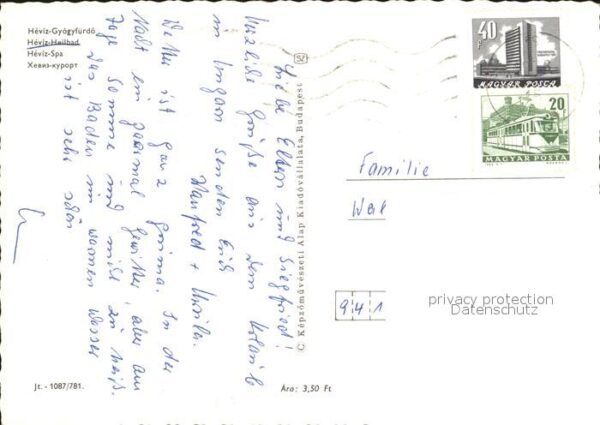 Hévíz-Gyógyfürdő
Hévíz-Heilbad
Hévíz-Spa
Хевиз-курорт
Liebe Eltern und Siegfried!
Herzliche Grüße aus dem Urlaub
in Ungarn senden Euch
Manfred + Ursula.
Wetter ist ganz prima. In der
Nacht ein paarmal Gewitter, aber am
Tage Sonne und nicht zu heiß.
Das Baden im warmen Wasser
ist sehr schön
C Képzőművészeti Alap Kiadóvállalata, Budapest
40 f
MAGYAR POSTA
20
MAGYAR POSTA
Familie
Weil
941
privacy protection
Datenschutz
Jt. - 1087/781.
Ára: 3,50 Ft